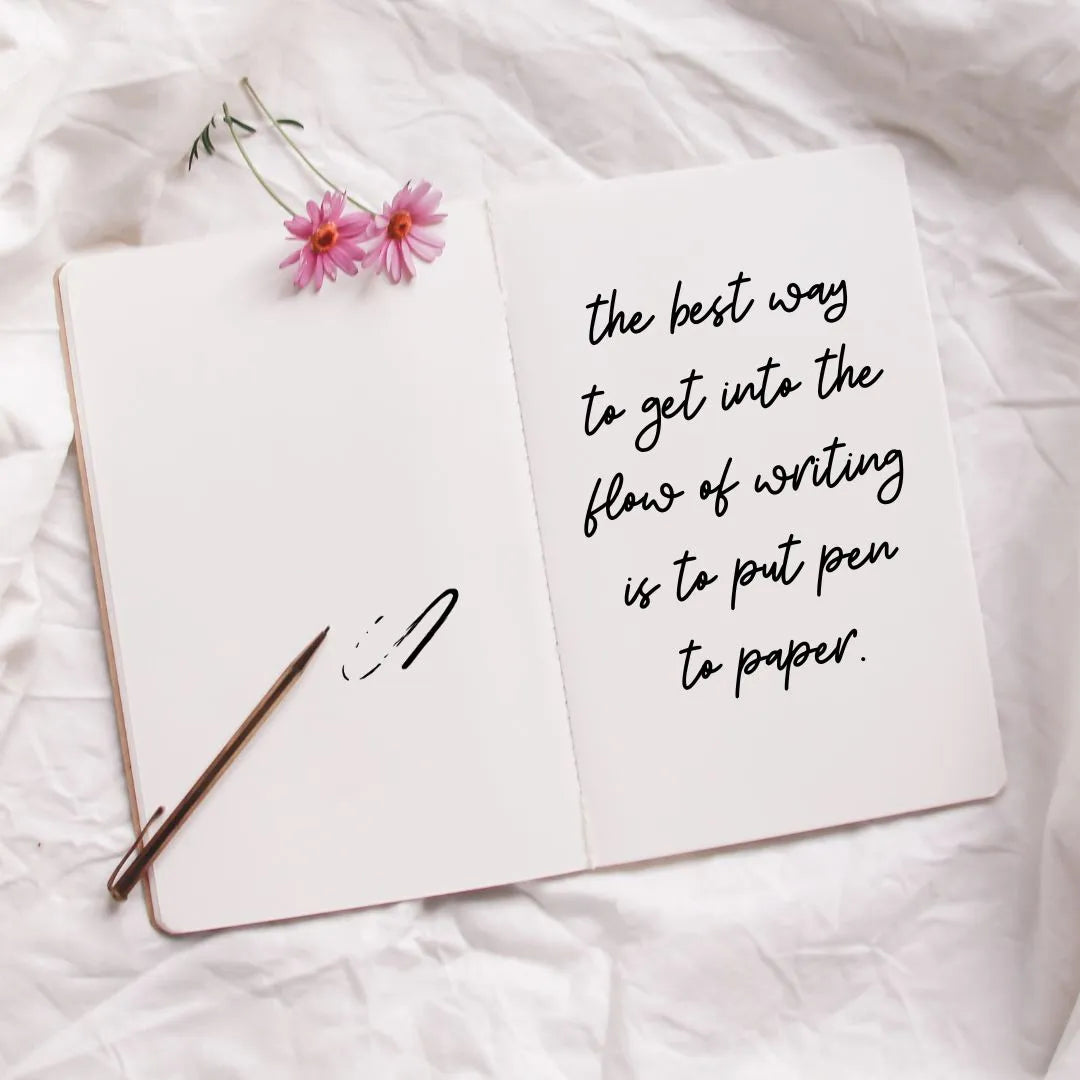 the best way
to get into the
flow of writing
is to put pen
to paper.